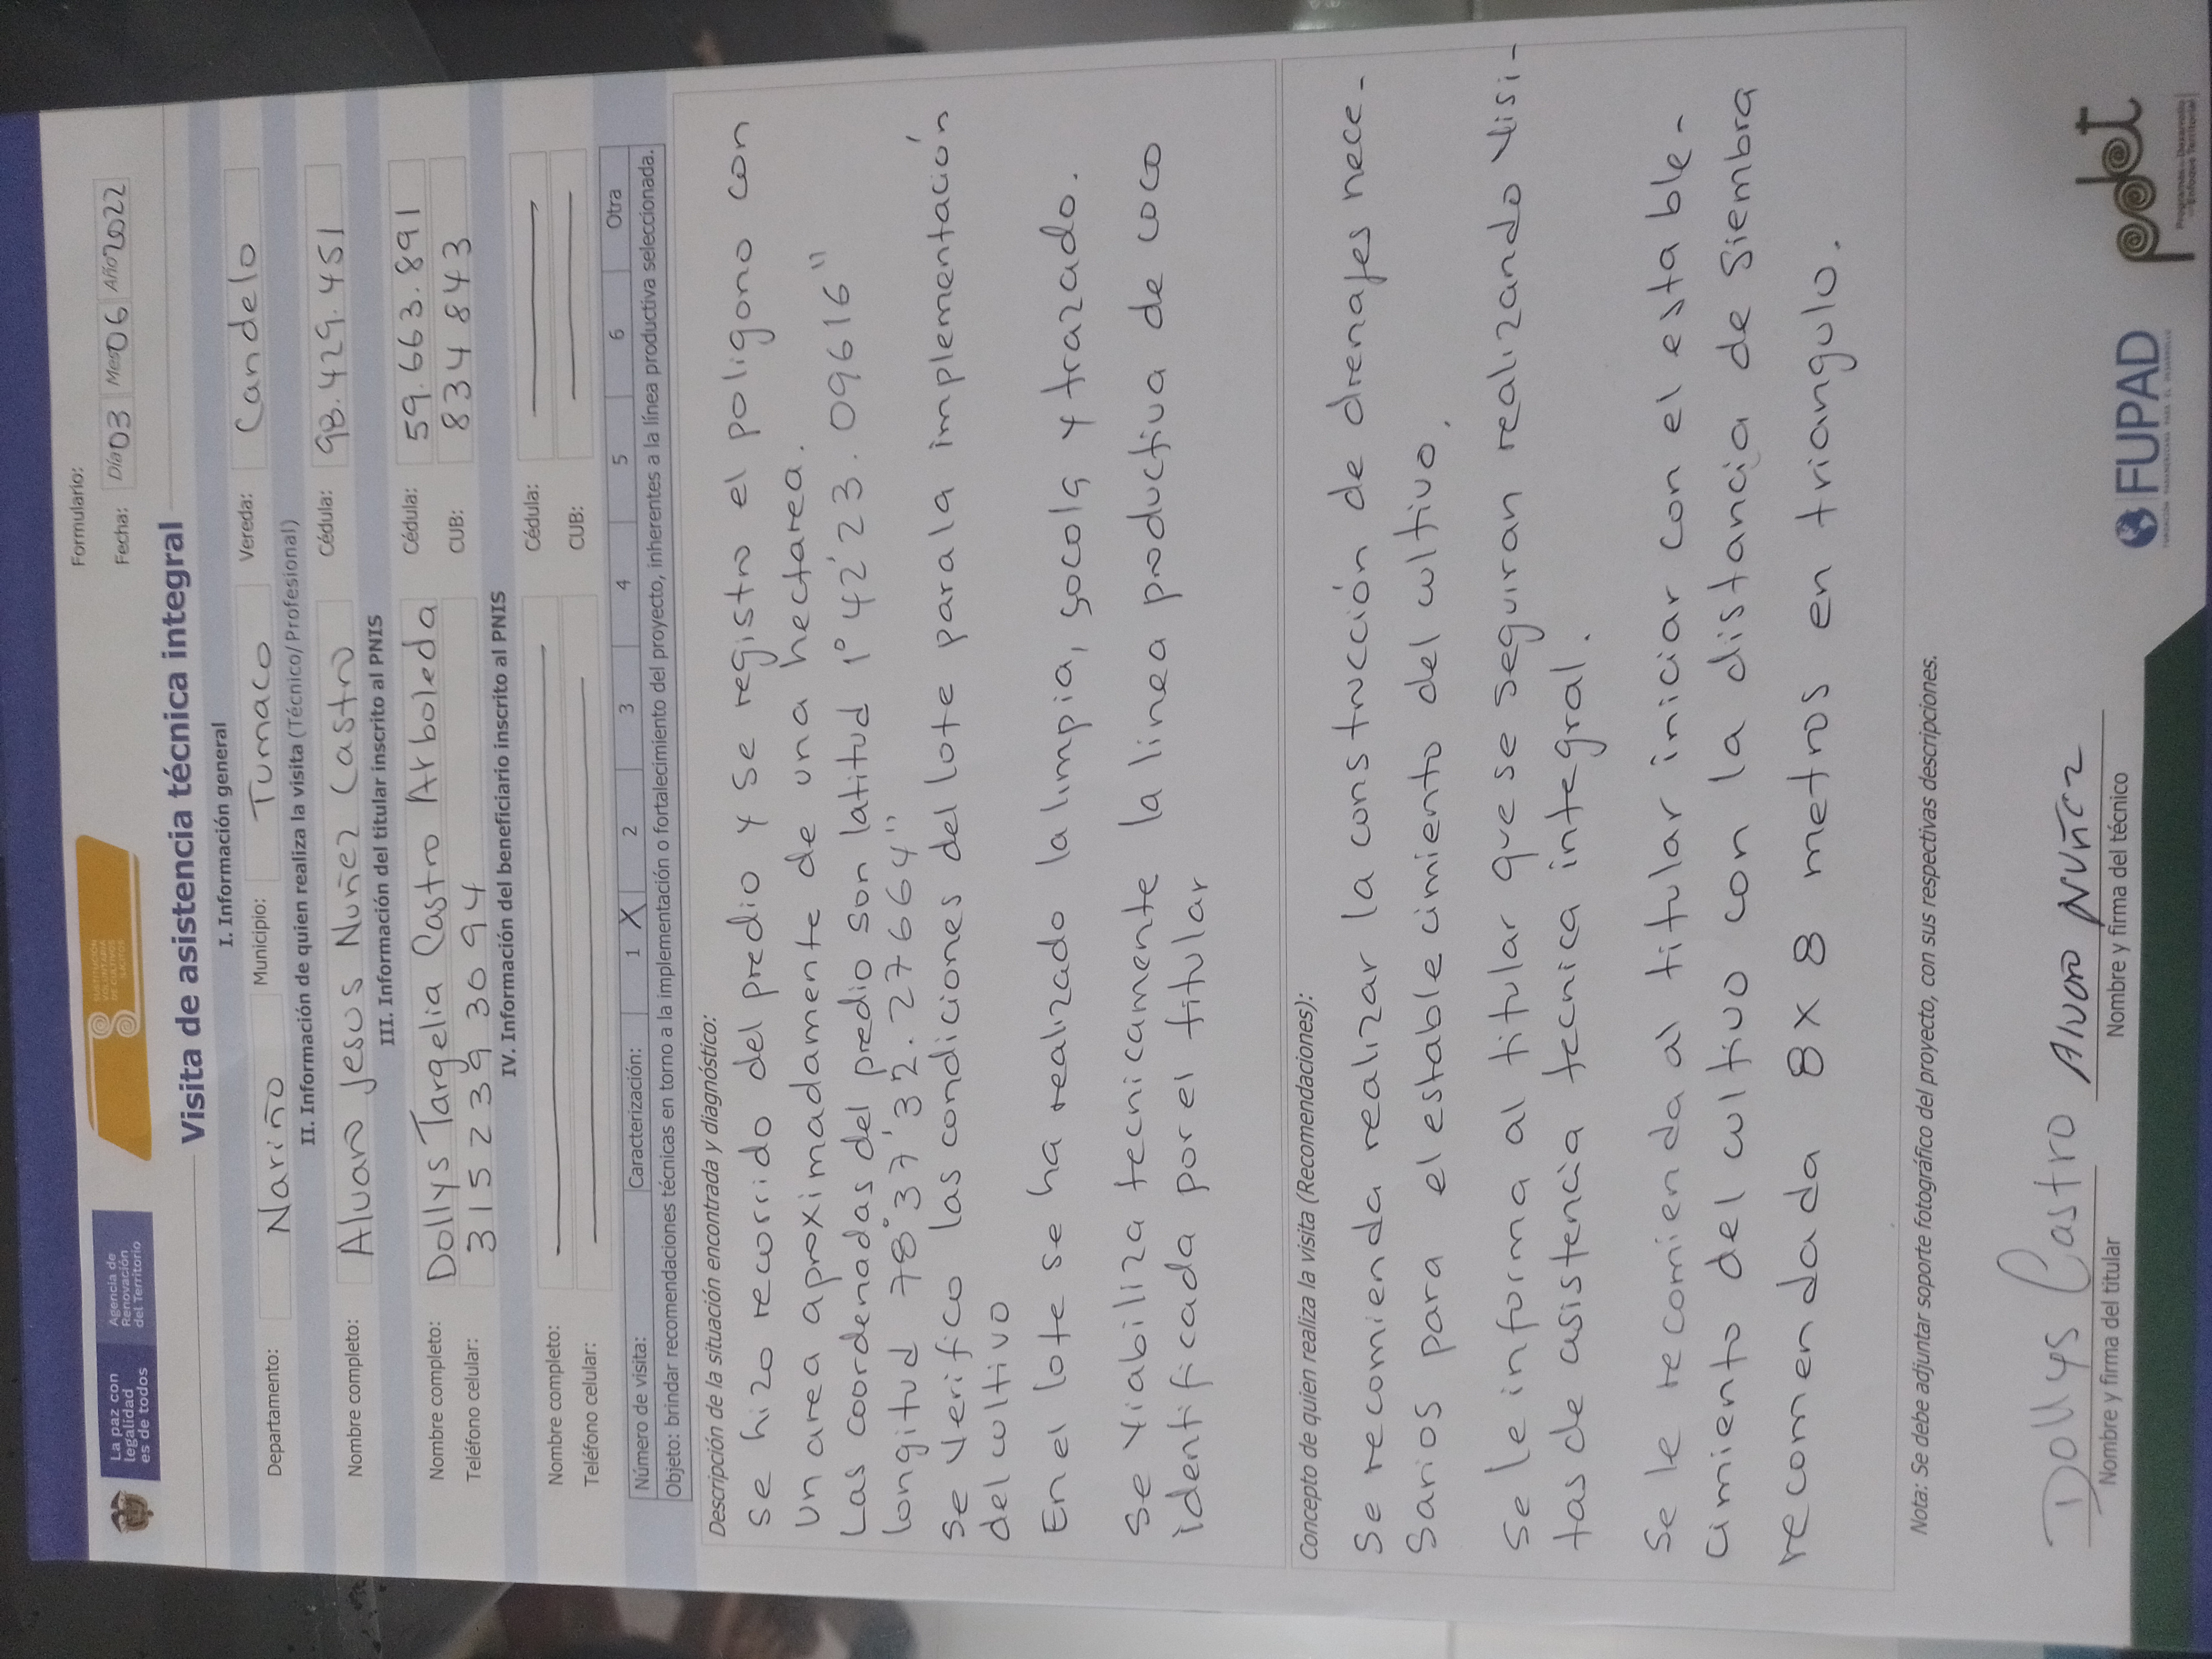 La paz con
legalidad
es de todos
Agencia de
Renovación
del Territorio
SUSTITUCIÓN
VOLUNTARIA
DE CULTIVOS
ILÍCITOS
Formulario:
Fecha: Día 03 Mes 06 Año 2022
Visita de asistencia técnica integral
I. Información general
Departamento: Nariño Municipio: Tumaco Vereda: Candelo
II. Información de quien realiza la visita (Técnico/Profesional)
Nombre completo: Alvaro Jesus Nuñez Castro Cédula: 98.429.451
III. Información del titular inscrito al PNIS
Nombre completo: Dollys Targelia Castro Arboleda Cédula: 59.663.891
Teléfono celular: 3152393094 CUB: 8348843
IV. Información del beneficiario inscrito al PNIS
Nombre completo: Cédula:
Teléfono celular: CUB:
Número de visita: Caracterización: 1 X 2 3 4 5 6 Otra
Objeto: brindar recomendaciones técnicas en torno a la implementación o fortalecimiento del proyecto, inherentes a la línea productiva seleccionada.
Descripción de la situación encontrada y diagnóstico:
Se hizo recorrido del predio y se registro el poligono con
un area aproximadamente de una hectarea.
Las coordenadas del predio son latitud 1° 42' 23.09616"
longitud 78° 37' 32.27664"
Se verifico las condiciones del lote para la implementación
del cultivo
En el lote se ha realizado la limpia, socola y trazado.
Se viabiliza tecnicamente la linea productiva de coco
identificada por el titular
Concepto de quien realiza la visita (Recomendaciones):
Se recomienda realizar la construcción de drenajes nece-
sarios para el establecimiento del cultivo.
Se le informa al titular que se seguiran realizando visi-
tas de asistencia tecnica integral.
Se le recomienda al titular iniciar con el estable-
cimiento del cultivo con la distancia de siembra
recomendada 8 x 8 metros en triangulo.
Nota: Se debe adjuntar soporte fotográfico del proyecto, con sus respectivas descripciones.
Dollys Castro
Nombre y firma del titular
Alvaro Nuñez
Nombre y firma del técnico
FUPAD
FUNDACIÓN PANAMERICANA PARA EL DESARROLLO
pdet
Programas de Desarrollo
con Enfoque Territorial